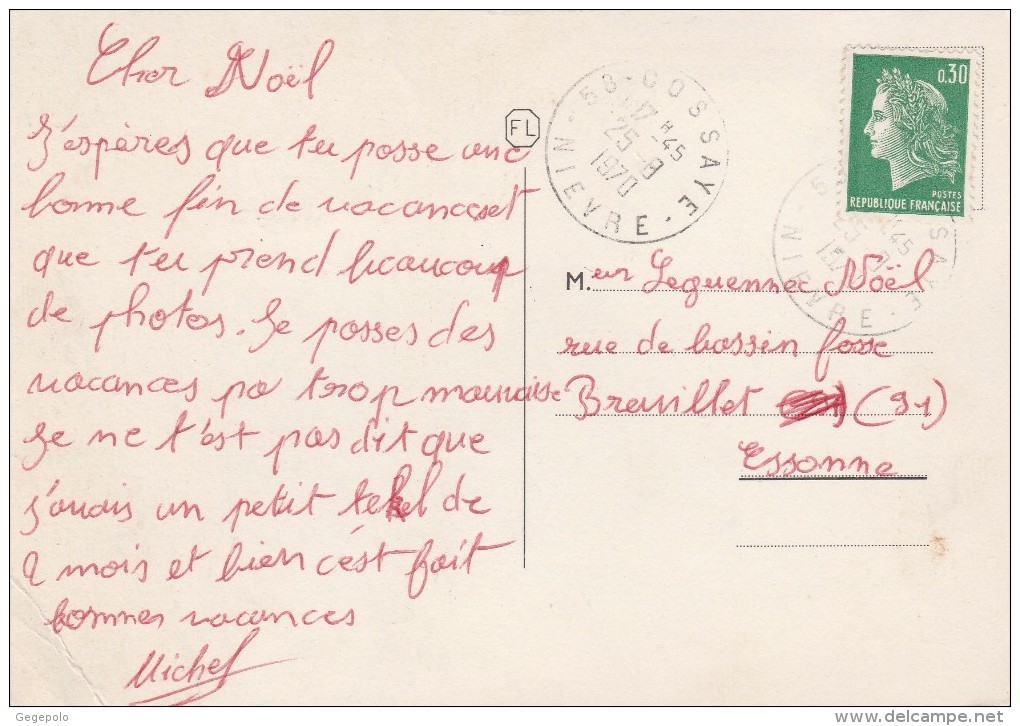 Cher Noël
J'éspères que tu posse une
bonne fin de vacances et
que tu prend beaucoup
de photos. Je posses des
vacances pa trop mauvaise
Je ne t'est pas dit que
j'avais un petit tekel de
2 mois et bien c'ést fait
bonnes vacances
Michel
FL
58-COSSAYE
17 H 45
25-8
1970
NIEVRE
0,30
POSTES
REPUBLIQUE FRANÇAISE
M.eur Leguennec Noël
rue de bassin fosse
Breuillet (91)
Essonne
Gegepolo
www.delcampe.net